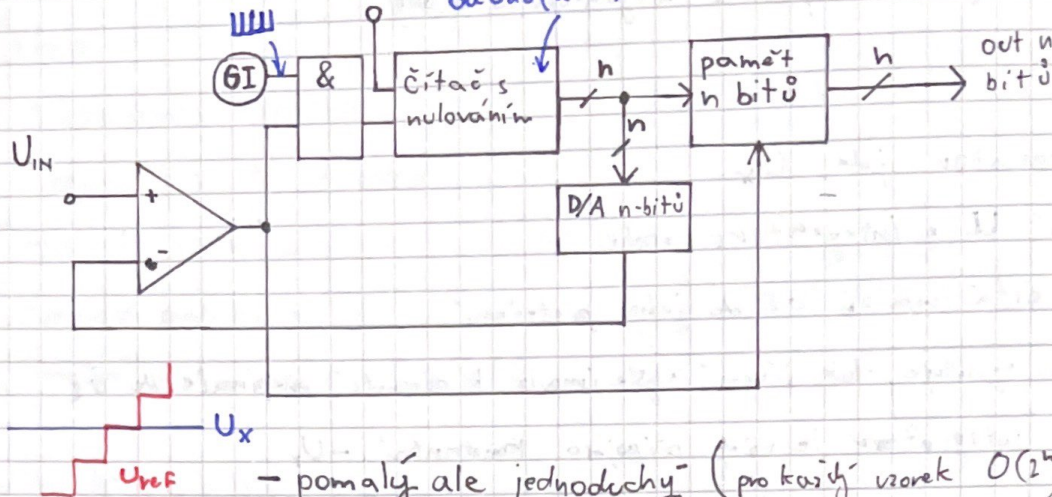 GI
&
čítač s
nulováním
n
n
paměť
n bitů
n
out n
bitů
U_IN
+
-
D/A n-bitů
U_x
U_ref
- pomalý ale jednoduchý (pro každý vzorek O(2^n